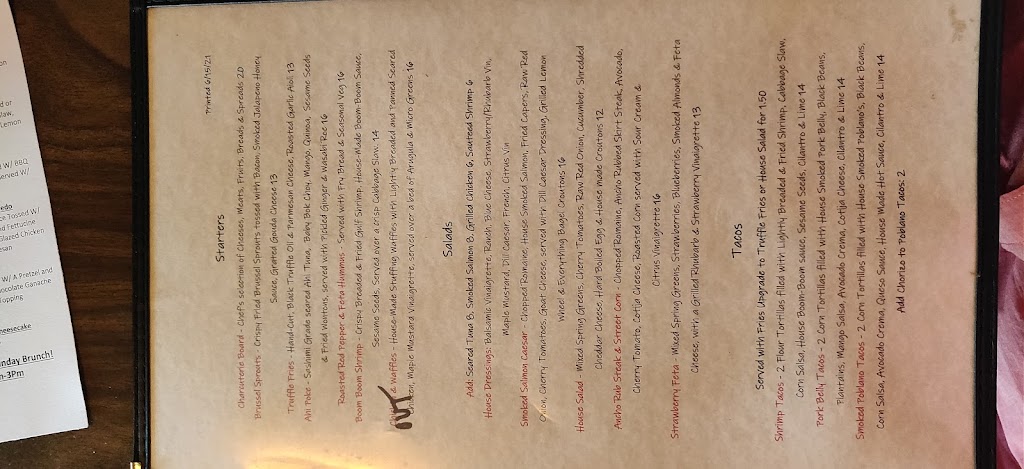 Printed 6/15/21
Starters
Charcuterie Board - Chefs selection of Cheeses, Meats, Fruits, Breads & Spreads 20
Brussel Sprouts - Crispy Fried Brussel Sprouts tossed with Bacon, Smoked Jalapeno Honey
Sauce, Grated Gouda Cheese 13
Truffle Fries - Hand-Cut, Black Truffle Oil & Parmesan Cheese, Roasted Garlic Aioli 13
Ahi Poke - Sashimi Grade seared Ahi Tuna, Baby Bok Choy, Mango, Quinoa, Sesame Seeds
& Fried Wontons, served with Pickled Ginger & Wasabi Roe 16
Roasted Red Pepper & Feta Hummus - Served with Fry Bread & Seasonal Veg 16
Boom Boom Shrimp - Crispy Breaded & Fried Gulf Shrimp, House-Made Boom-Boom Sauce,
Sesame Seeds, Served over a Crisp Cabbage Slaw. 14
& Waffles - House-Made Stuffing Waffles with Lightly Breaded and Panned Seared
OUT
Chicken, Maple Mustard Vinaigrette, served over a bed of Arugula & Micro Greens 16
Salads
Add: Seared Tuna 8, Smoked Salmon 8, Grilled Chicken 6, Sauteed Shrimp 6
House Dressings: Balsamic Vinaigrette, Ranch, Blue Cheese, Strawberry/Rhubarb Vin,
Maple Mustard, Dill Caesar, French, Citrus Vin
Smoked Salmon Caesar - Chopped Romaine, House Smoked Salmon, Fried Capers, Raw Red
Onion, Cherry Tomatoes, Goat Cheese, served with Dill Caesar Dressing, Grilled Lemon
Wheel & Everything Bagel Croutons 16
House Salad - Mixed Spring Greens, Cherry Tomatoes, Raw Red Onion, Cucumber, Shredded
Cheddar Cheese, Hard Boiled Egg & House made Croutons 12
Ancho Rub Steak & Street Corn - Chopped Romaine, Ancho Rubbed Skirt Steak, Avocado,
Cherry Tomato, Cotija Cheese, Roasted Corn served with Sour Cream &
Citrus Vinaigrette 16
Strawberry Feta - Mixed Spring Greens, Strawberries, Blueberries, Smoked Almonds & Feta
Cheese, with a Grilled Rhubarb & Strawberry Vinaigrette 13
Tacos
Served with Fries Upgrade to Truffle Fries or House Salad for 1.50
Shrimp Tacos - 2 Flour Tortillas filled with Lightly Breaded & Fried Shrimp, Cabbage Slaw,
Corn Salsa, House Boom-Boom sauce, Sesame Seeds, Cilantro & Lime 14
Pork Belly Tacos - 2 Corn Tortillas filled with House Smoked Pork Belly, Black Beans,
Plantains, Mango Salsa, Avocado Crema, Cotija Cheese, Cilantro & Lime 14
Smoked Poblano Tacos - 2 Corn Tortillas filled with House Smoked Poblano's, Black Beans,
Corn Salsa, Avocado Crema, Queso Sauce, House Made Hot Sauce, Cilantro & Lime 14
Add Chorizo to Poblano Tacos: 2
Lemon
W/ BBQ
Served W/
Tossed W/
Fettucine
Glazed Chicken
W/ A Pretzel and
Ganache
Topping
Brunch!
3Pm